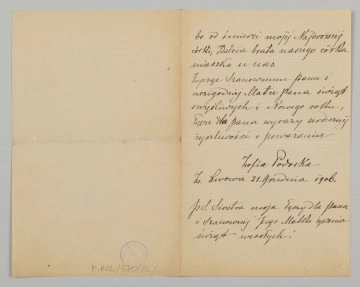 bo od śmierci mojéj Najdroższej
córki, Dziecia brata naszego córka
mieszka u nas.
Życzę Szanownemu Panu i
czcigodnej Matce Pana świąt
szczęśliwych i Nowego roku,
łączę dla Pana wyrazy
życzliwości i poważania
Zofia
Ze Lwowa 21 Grudnia 1906.
ps. Siostra moja łączy dla Pana
i Szanownej Jego Matki życzenia
świąt wesołych!